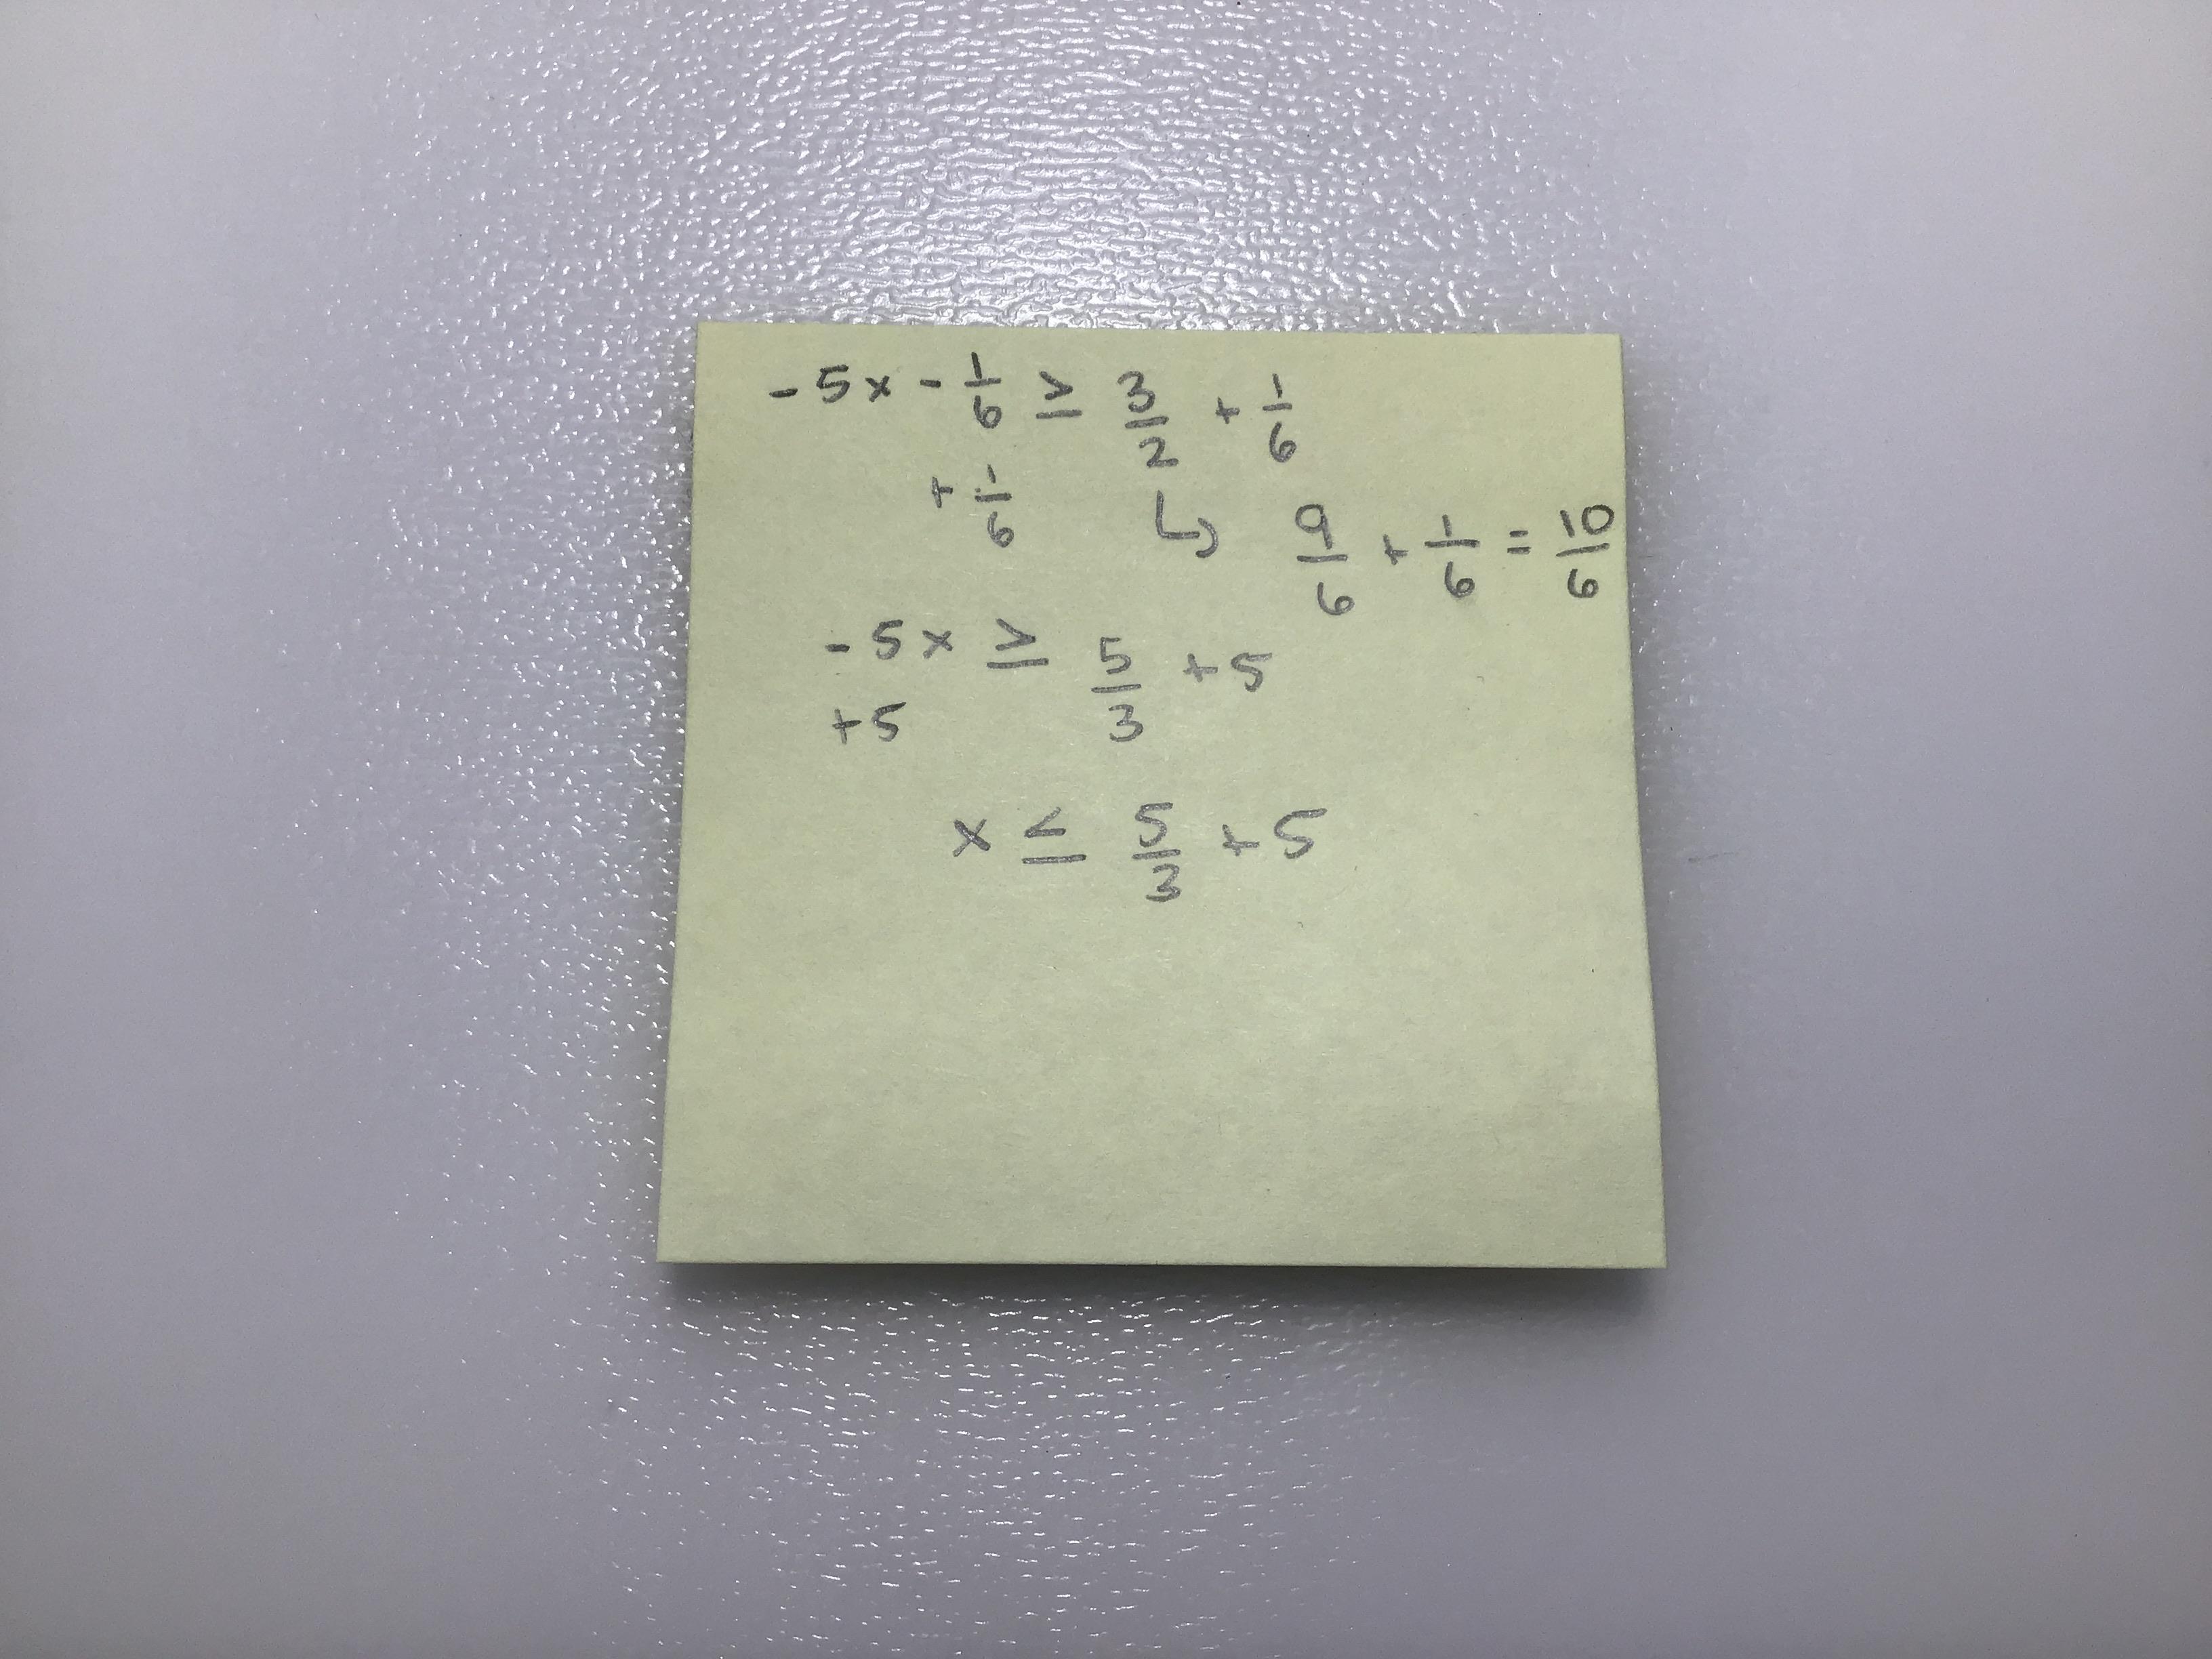 -5x - 1/6 ≥ 3/2 + 1/6
+ 1/6 ↳ 9/6 + 1/6 = 10/6
-5x ≥ 5/3 + 5
+5
x ≤ 5/3 + 5